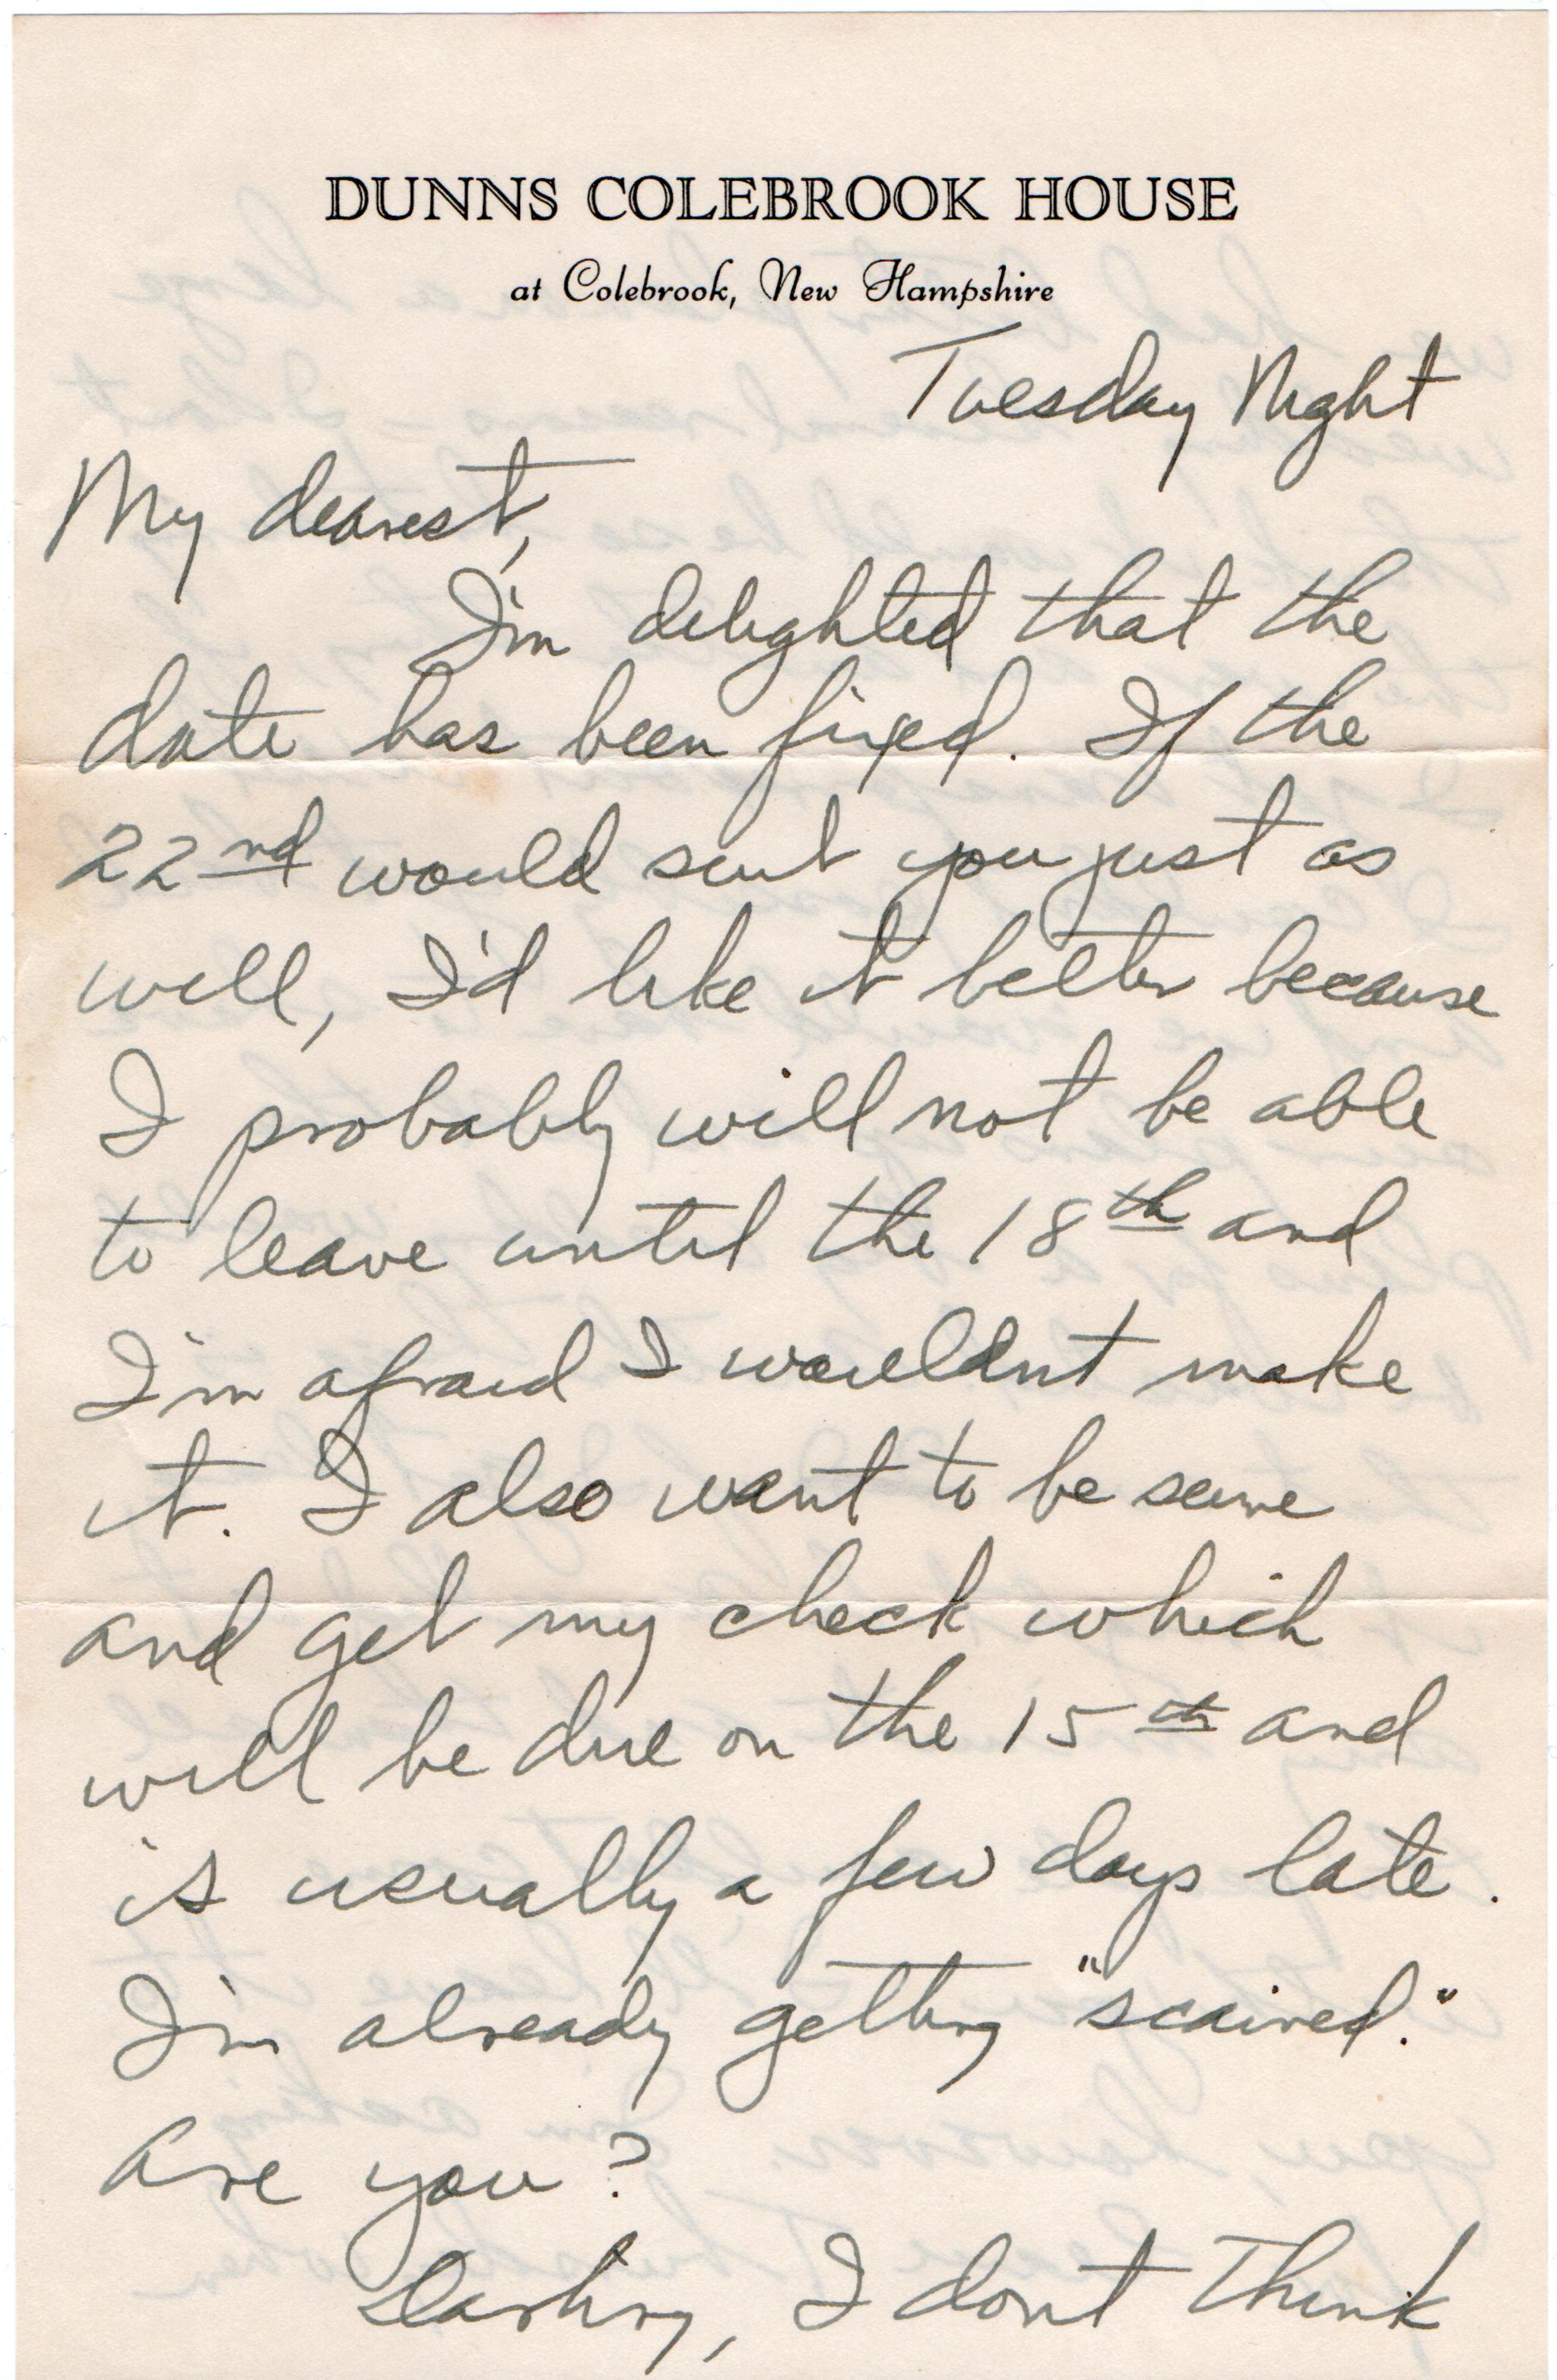 DUNNS COLEBROOK HOUSE
at Colebrook, New Hampshire
Tuesday Night
My dearest,
I'm delighted that the
date has been fixed. If the
22nd would suit you just as
well, I'd like it better because
I probably will not be able
to leave until the 18th and
I'm afraid I wouldnt make
it. I also want to be sure
and get my check which
will be due on the 15th and
is usually a few days late.
I'm already getting "scaired."
Are you?
Darling, I dont think